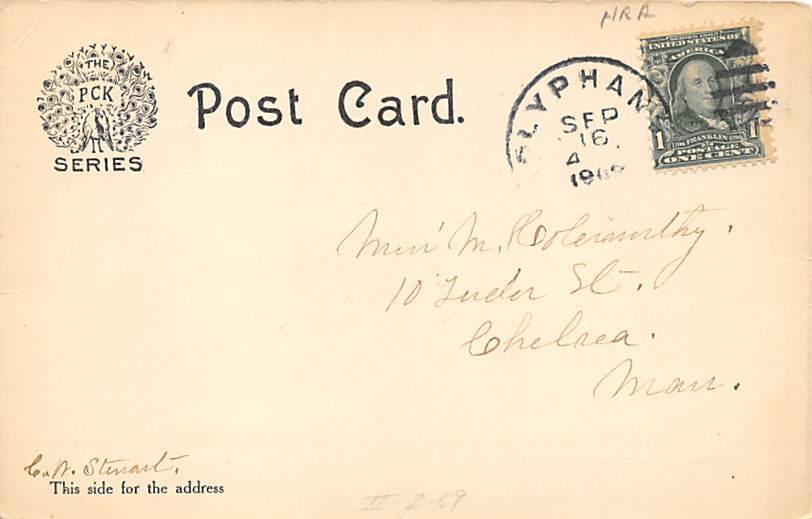 HRA
THE
PCK
SERIES
Post Card.
OLYPHANT
SEP
16
4
190
SERIES 1902
UNITED STATES OF
AMERICA
1 1706 FRANKLIN 1790 1
POSTAGE
ONE CENT
Miss M. Holesworthy.
10 Tudor St.
Chelsea.
Mass.
C. W. Stewart.
This side for the address
II-2-69